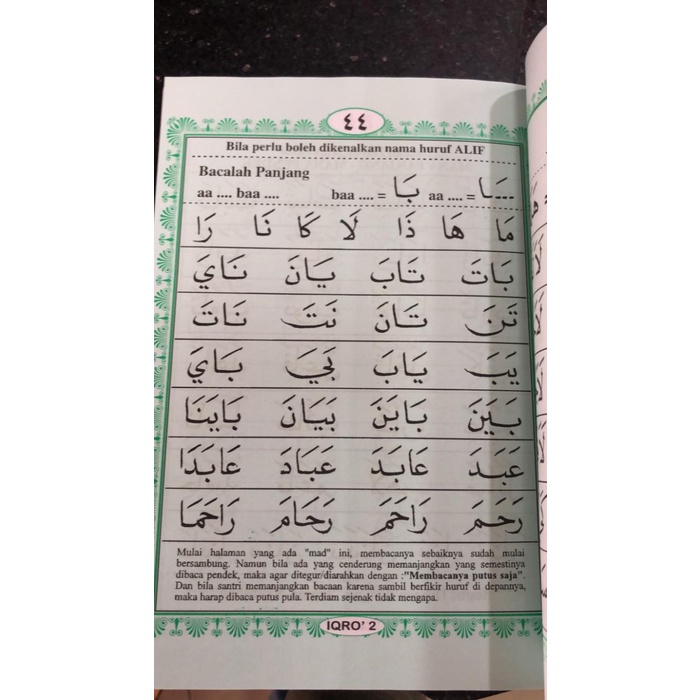 ٤٤
Bila perlu boleh dikenalkan nama huruf ALIF
Bacalah Panjang
aa .... baa .... baa .... = بَا aa .... = ـَـا
مَا هَا ذَا لَا كَا نَا رَا
بَاتَ تَابَ يَانَ نَايَ
تَنَ تَانَ نَتَ نَاتَ
يَبَ يَابَ بَيَ بَايَ
بَيَنَ بَايَنَ بَيَانَ بَايَنَا
عَبَدَ عَابَدَ عَبَادَ عَابَدَا
رَحَمَ رَاحَمَ رَحَامَ رَاحَمَا
Mulai halaman yang ada "mad" ini, membacanya sebaiknya sudah mulai
bersambung. Namun bila ada yang cenderung memanjangkan yang semestinya
dibaca pendek, maka agar ditegur/diarahkan dengan :"Membacanya putus saja".
Dan bila santri memanjangkan bacaan karena sambil berfikir huruf di depannya,
maka harap dibaca putus pula. Terdiam sejenak tidak mengapa.
IQRO' 2